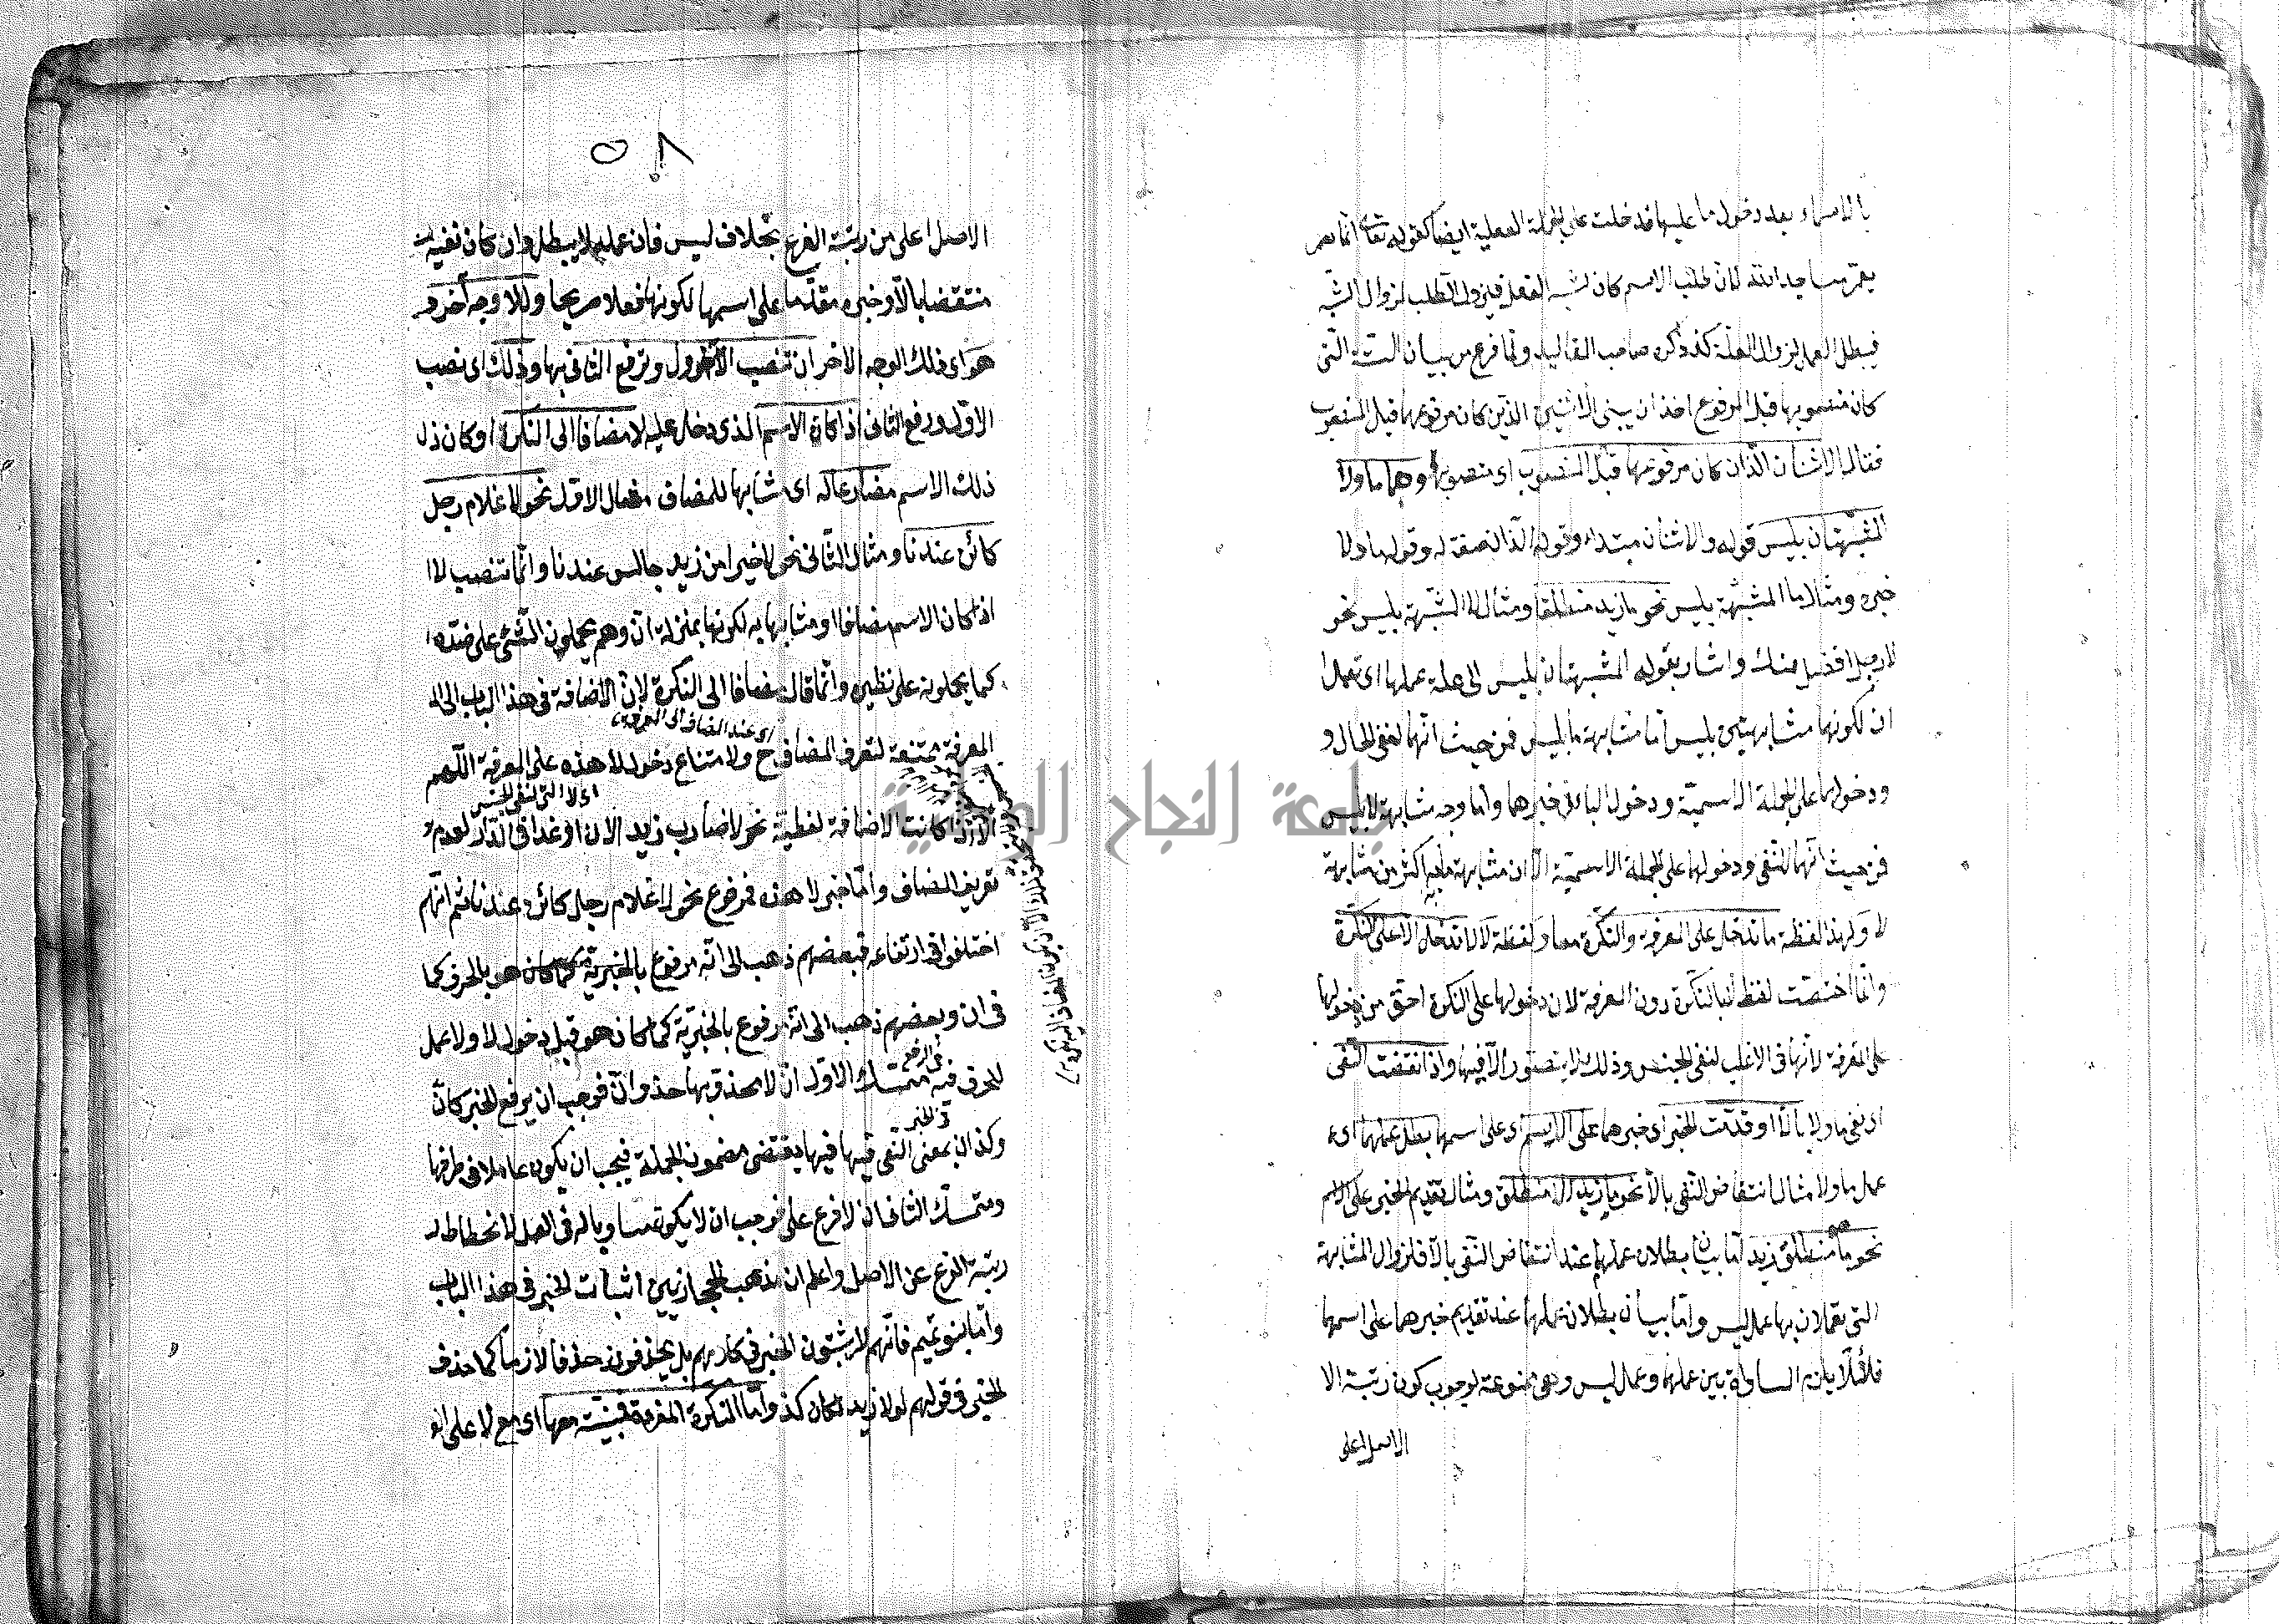 بالاسماء بعد دخول ما عليها قد خلت على الجملة الفعلية ايضا كقوله تعالى انما يعمر
يعمر مساجد الله لان طلب الاسم كان لشبه الفعل فيزول الطلب لزوال الشبه
فبطل العمل لزوال العلة كذا ذكره صاحب المقاليد ولما فرغ من بيان الستة التى
كان منصوبها قبل المرفوع اخذ ان يبين الاثنين الذين كان مرفوعها قبل المنصوب
فقال الاثنان الذان كان مرفوعها قبل المنصوب اى منصوبها وهما ما ولا
المشبهتان بليس قوله والاثنان مبتداء وقوله الذان صفة له وقوله ما ولا
خبره ومثال ما المشبهة بليس نحو ما زيد منطلقا ومثال لا المشبهة بليس نحو
لا رجل افضل منك واشار بقوله المشبهتان بليس الى علة عملها اى تعملا
ان لكونها مشابهتين بليس اما مشابهة ما بليس فمن حيث انها لنفى الحال و
ودخولها على الجملة الاسمية ودخول الباء فى خبرها واما وجه مشابهة لا بليس
فمن حيث انها للنفى ودخولها على الجملة الاسمية الا ان مشابهة ما به اكثر من مشابهة
لا ولهذا لفظة ما تدخل على المعرفة والنكرة معا ولفظة لا لا تدخل الا على النكرة
وانما اختصت لفظ لا بالنكرة دون المعرفة لان دخولها على النكرة احق من دخولها
على المعرفة لانها فى الاغلب لنفى الجنس وذلك لا يتصور الا فيها واذا انتقضت النفى
اى نفى ما ولا بالا او قدمت الخبر اى خبرهما على الاسم اى على اسمها بطل عملهما اى
عمل ما ولا مثال انتقاض النفى بالا نحو ما زيد الا منطلق ومثال تقديم الخبر على الاسم
نحو ما منطلق زيد اما بيان بطلان عملها عند انتقاض النفى بالا فلزوال المشابهة
التى تعملان بها عمل ليس واما بيان بطلان عملها عند تقديم خبرهما على اسمها
فلئلا يلزم المساواة بين عملهما وعمل ليس وهى ممنوعة لوجوب كون رتبة الا
الاصل اعلى
٥٨
الاصل اعلى من رتبة الفرع بخلاف ليس فان عمله لا يبطل وان كان نفيه
منتقضا بالا وخبره مقدما على اسمها لكونها فعلا صريحا وللا وجه آخر و
هو اى ذلك الوجه الاخر ان تنصب الاول وترفع الثانى بها وذلك اى نصب
الاول ورفع الثانى اذا كان الاسم الذى دخل عليه لا مضافا الى النكرة او كان ذل
ذلك الاسم مضارعا له اى مشابها للمضاف مثال الاول نحو لا غلام رجل
كائن عندنا ومثال الثانى نحو لا خيرا من زيد جالس عندنا وانما تنصب لا
اذا كان الاسم مضافا او مشابها به لكونها بمنزلة ان وهم يحملون الشئ على ضده
كما يحملونه على نظيره وانما قال مضافا الى النكرة لان الاضافة فى هذا الباب الى
اى عند المضاف الى المعرفة
المعرفة ممتنعة لتعرف المضاف ح ولامتناع دخول لا هذه على المعرفة اللهم
اى لا التى لنفى الجنس
الا اذا كانت الاضافة لفظية نحو لا ضارب زيد الان او غدا فى الدار لعدم
تعريف المضاف واما خبر لا هذه فمرفوع نحو لا غلام رجل كائن عندنا ثم انهم
اختلفوا فى ارتفاعه فبعضهم ذهب الى انه مرفوع بالحرف كما
فى ان وبعضهم ذهب الى انه مرفوع بالخبرية كما كان هو قبل دخول لا ولا عمل
فى الرفع
للحرف فيه متمسك الاول ان لا يحذو بها حذو ان فوجب ان يرفع الخبر كان
فى الخبر
وكذا ان بمعنى النفى فيها يقتضى مضمون الجملة فيجب ان يكون عاملا فى طرفها
ومتمسك الثانى ان لا فرع على فوجب ان لا يكون مساويا له فى العمل لانحطاط
رتبة الفرع عن الاصل واعلم ان مذهب الحجازيين اثبات الخبر فى هذا الباب
واما بنو تميم فانهم لا يثبتون الخبر فى كلامهم بل يحذفونه حذفا لازما كما حذف
الخبر فى قولهم لولا زيد لكان كذا واما النكرة المفردة فمبنية معها اى مع لا على
جامعة النجاح الوطنية